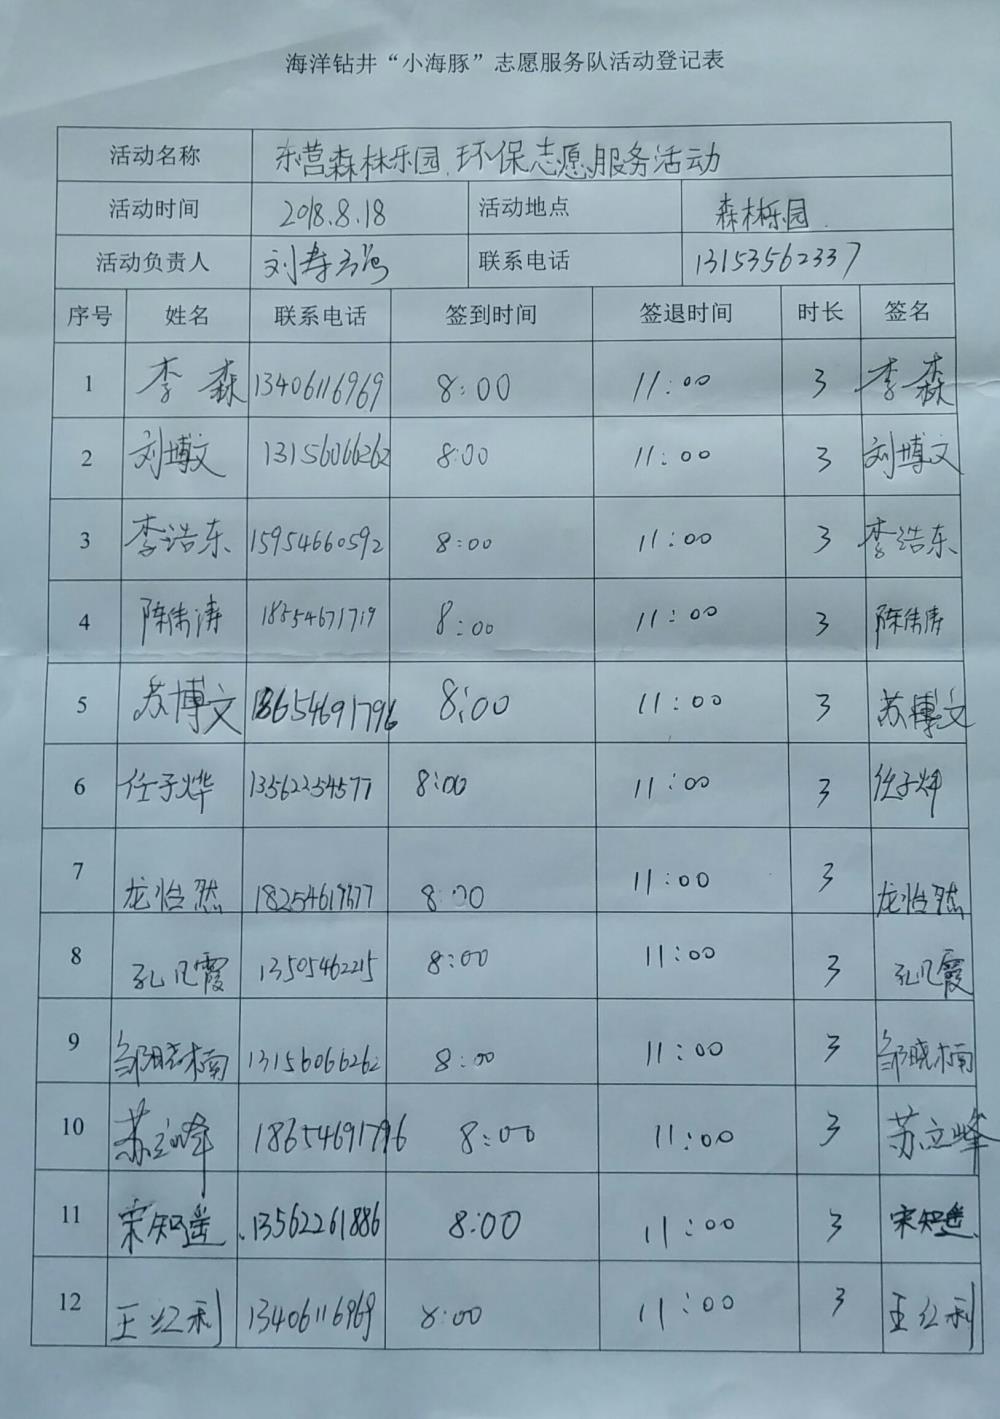 海洋钻井“小海豚”志愿服务队活动登记表
活动名称 东营森林乐园、环保志愿服务活动
活动时间 2018.8.18 活动地点 森林乐园.
活动负责人 刘寿 联系电话 13153562337
序号 姓名 联系电话 签到时间 签退时间 时长 签名
1 李森 13406116969 8:00 11:00 3 李森
2 刘博文 13156066262 8:00 11:00 3 刘博文
3 李浩东 15954660592 8:00 11:00 3 李浩东
4 陈伟涛 18554671719 8:00 11:00 3 陈伟涛
5 苏博文 18654691796 8:00 11:00 3 苏博文
6 任子烨 13562254577 8:00 11:00 3 任子烨
7 龙怡然 8:00 11:00 3 龙怡然
8 孔凡霞 13505462215 8:00 11:00 3 孔凡霞
9 邹晓楠 13156066262 8:00 11:00 3 邹晓楠
10 苏立峰 18654691796 8:00 11:00 3 苏立峰
11 宋知遥 13562261886 8:00 11:00 3 宋知遥
12 王红利 13406116969 8:00 11:00 3 王红利